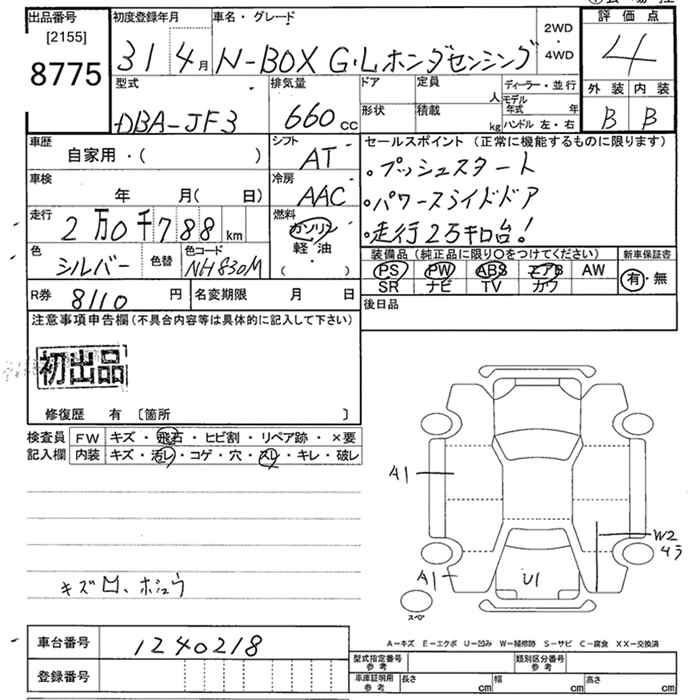 出品番号
[2155]
8775
初度登録年月
31 4月
車名・グレード
N-BOX G・Lホンダセンシング
2WD
・
4WD
評価点
4
外装 内装
B B
型式
DBA-JF3
排気量
660cc
ドア
定員
人
形状
積載
kg
ディーラー・並行
モデル年式 年
ハンドル 左・右
車歴
自家用・( )
シフト
AT
セールスポイント (正常に機能するものに限ります)
・プッシュスタート
・パワースライドドア
・走行2万キロ台!
車検
年 月( 日)
冷房
AAC
走行
2万0千788km
燃料
ガソリン
軽油
( )
色
シルバー
色替
色コード
NH830M
装備品 (純正品に限り○をつけてください)
PS PW ABS エアB AW
SR ナビ TV カワ
新車保証書
有・無
R券 8110円
名変期限 月 日
後日品
注意事項申告欄 (不具合内容等は具体的に記入して下さい)
初出品
修復歴 有 〔箇所 〕
検査員
記入欄
FW キズ・飛石・ヒビ割・リペア跡・×要
内装 キズ・汚レ・コゲ・穴・スレ・キレ・破レ
A1
W2
A1
U1
スペア
A-キズ E-エクボ U-凹み W-補修跡 S-サビ C-腐食 XX-交換済
車台番号 1240218
登録番号
型式指定番号 参考
類別区分番号 参考
車庫証明用 参考
長さ cm
幅 cm
高さ cm